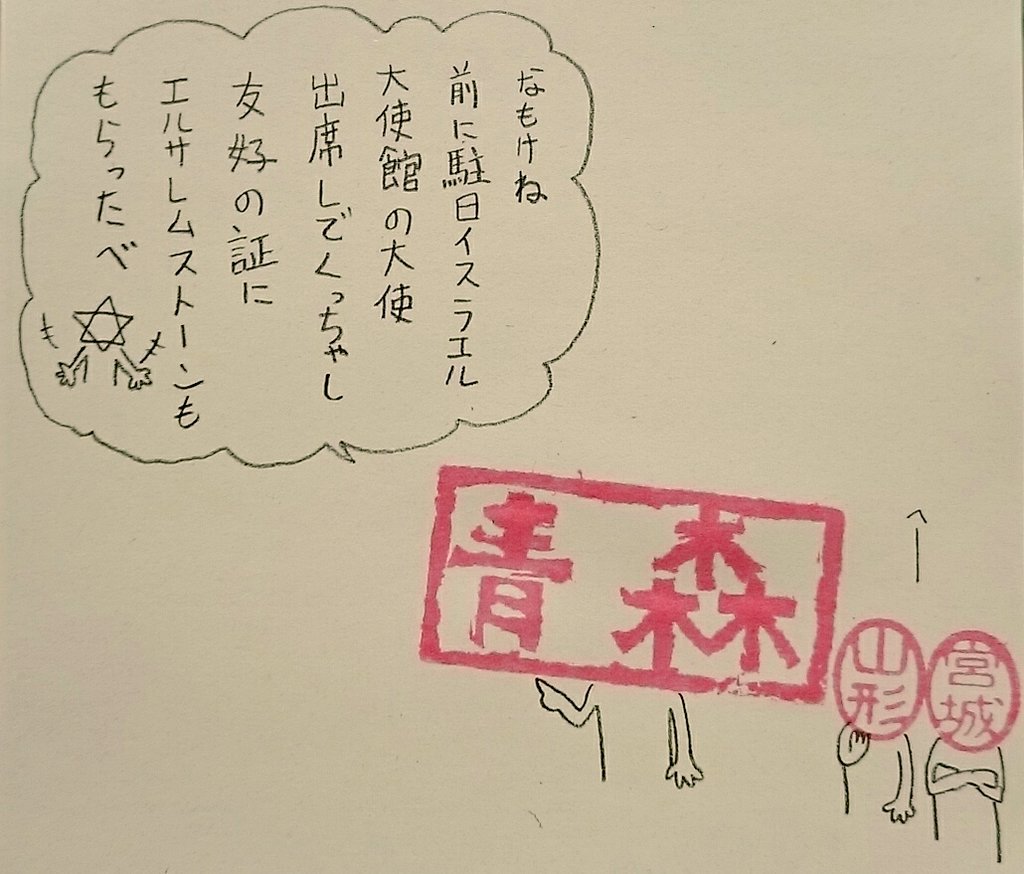 なもけね
前に駐日イスラエル
大使館の大使
出席しでくっちゃし
友好の証に
エルサレムストーンも
もらったべ
青森
山形
宮城